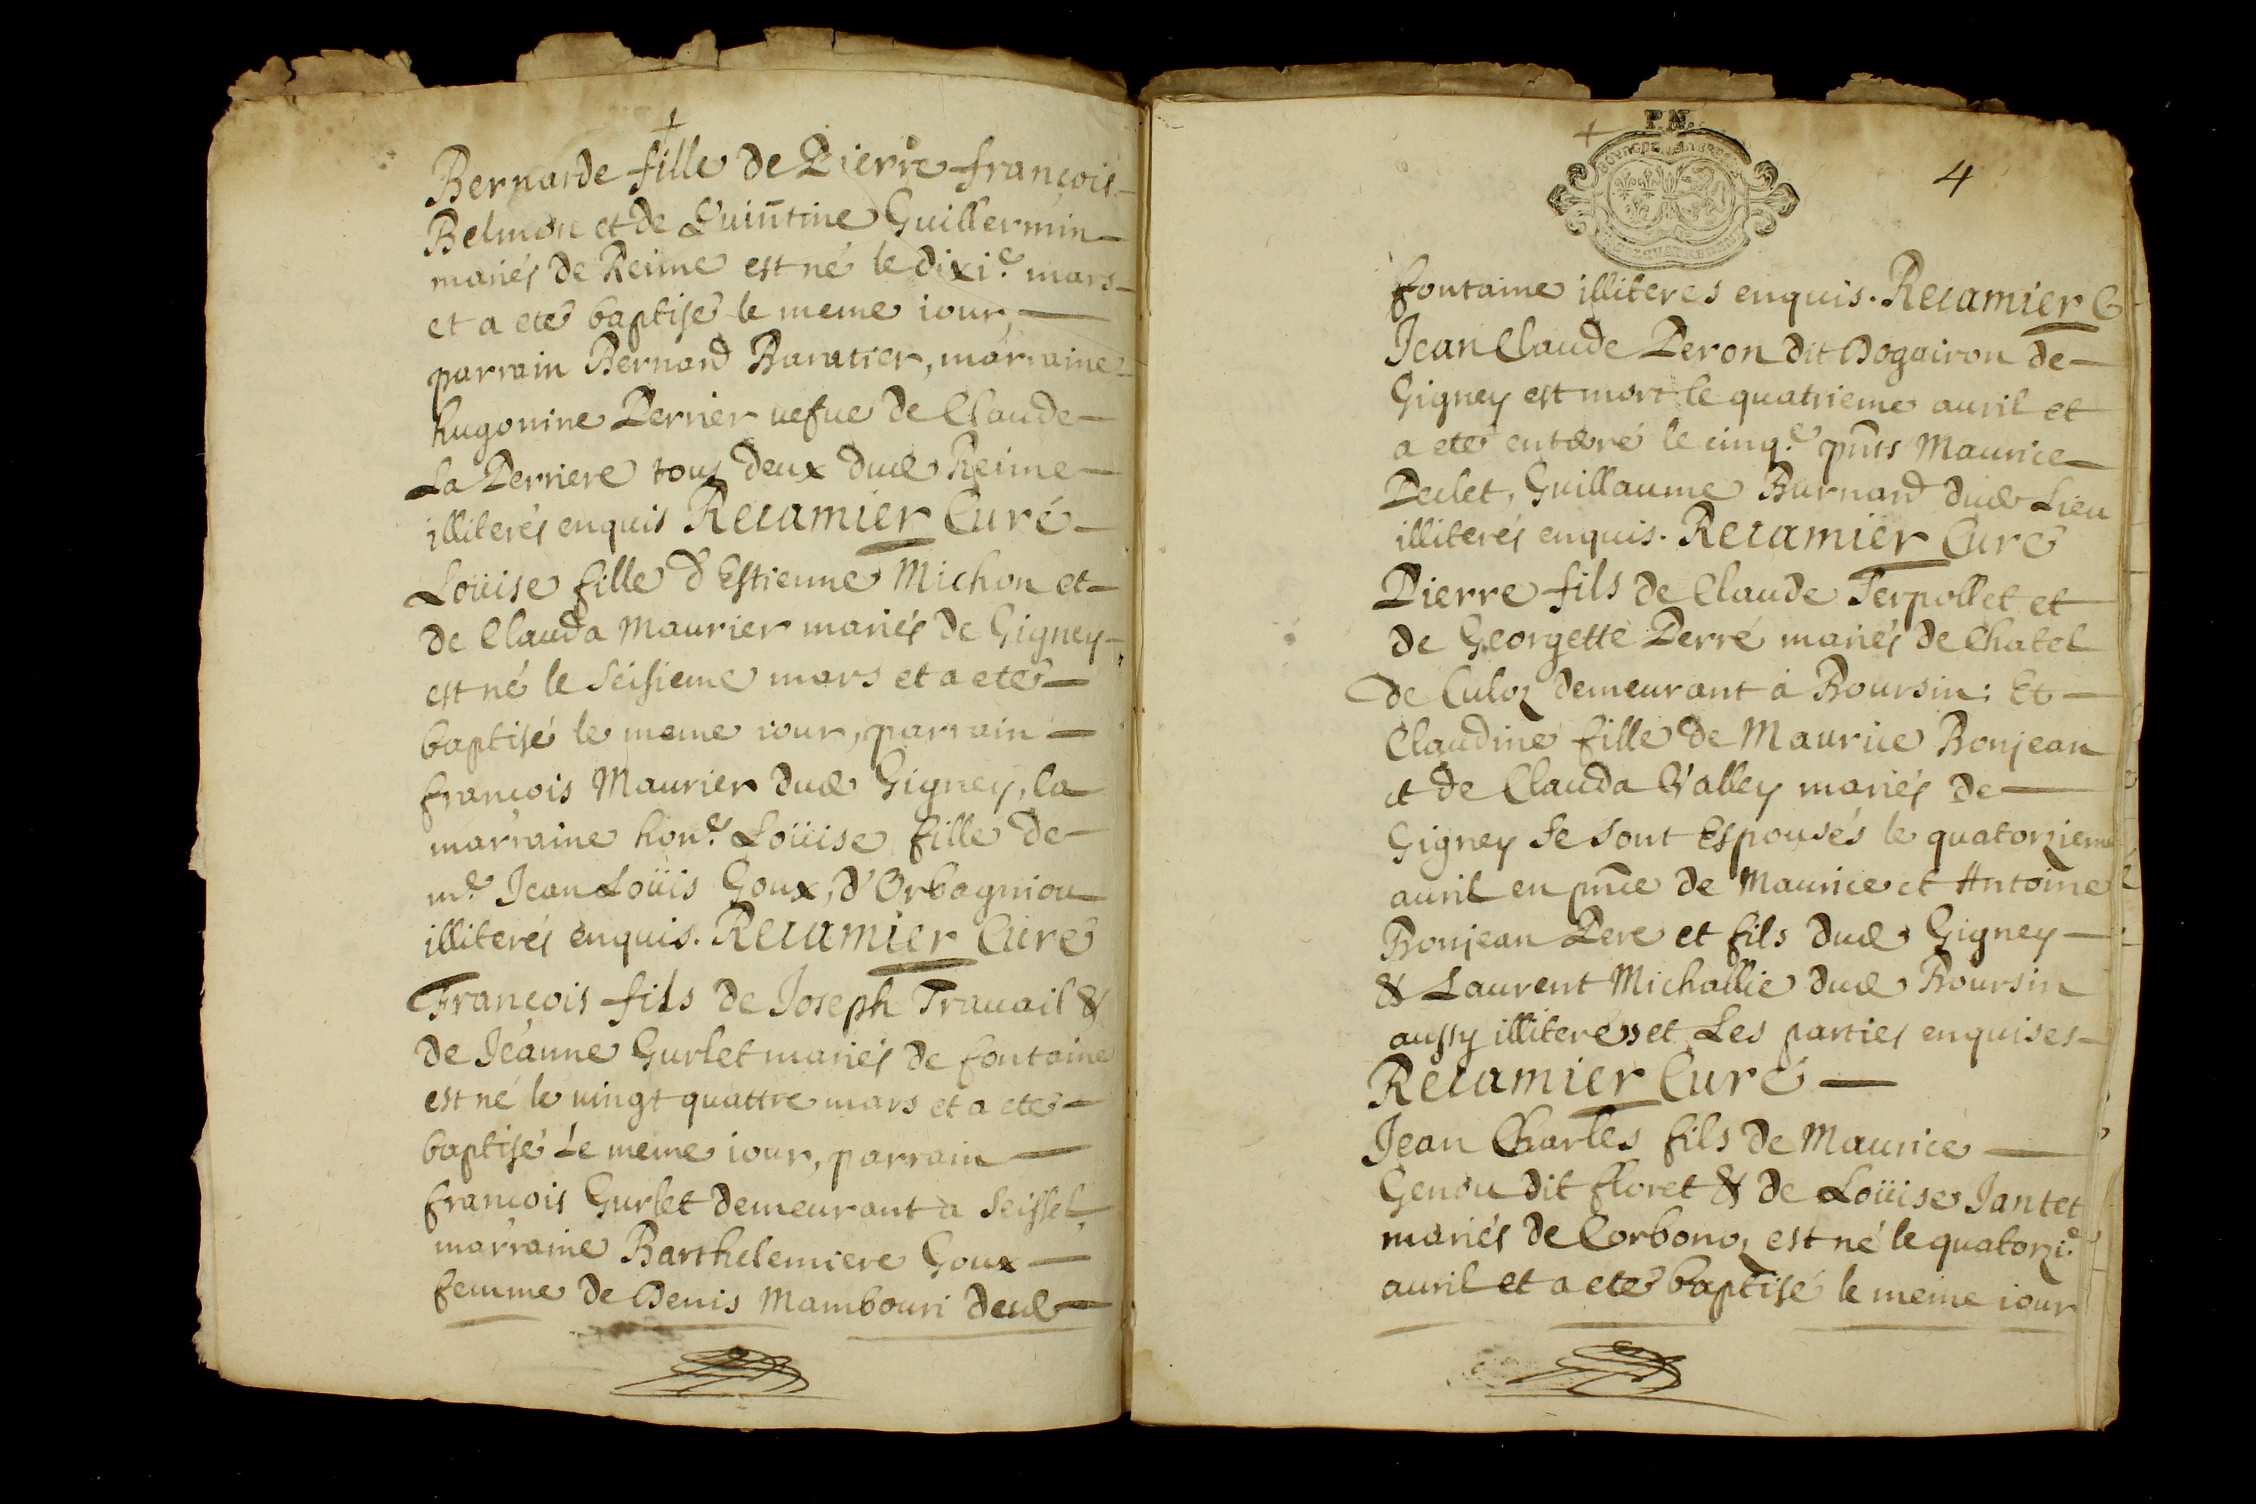 Bernarde fille de Pierre françois
Belmon et de Quintine Guillermin
mariés de Reime est né le dixi.e mars
et a eté baptisé le meme iour,
parrain Bernard Baratier, marraine
hugonine Perrier uefue de Claude
La Perriere tous deux dud Reime
illiterés enquis Recamier Curé
Loüise fille d'Estienne Michon et
de Clauda Maurier mariés de Gigney
est né le Seisieme mars et a eté
baptisé le meme iour, parrain
françois Maurier dud Gigney, la
marraine hon.e Loüise fille de
m.e Jean Loüis Goux, d'Orbagniou
illiterés enquis. Recamier Curé
François fils de Joseph Trauail &
de Jeanne Gurlet mariés de fontaine
est né le uingt quattre mars et a eté
baptisé Le meme iour, parrain
françois Gurlet demeurant a Seissel,
marraine Barthelemiere Goux
femme de Denis Mambouri deud
P.N.
4
fontaine illiteres enquis. Recamier C
Jean Claude Peron dit Dogairon de
Gigney est mort le quatrieme auril et
a eté enteré le cinq.e pnts Maurice
Peclet, Guillaume Burnard dud Lieu
illiterés enquis. Recamier Curé
Pierre fils de Claude Serpollet et
de Georgette Perré mariés de Chatel
de Culoz demeurant à Boursin: Et
Claudine fille de Maurice Bonjean
et de Clauda Valley mariés de
Gigney Se Sont Espousés le quatorzieme
auril en pnce de Maurice et Antoine
Bonjean Pere et fils dud Gigney
& Laurent Michallie dud Boursin
aussy illiterés et Les parties enquises
Recamier Curé
Jean Charles fils de Maurice
Genou dit floret & de Loüise Jantet
mariés de Corbono, est né le quatorzi.e
auril et a eté baptisé le meme iour